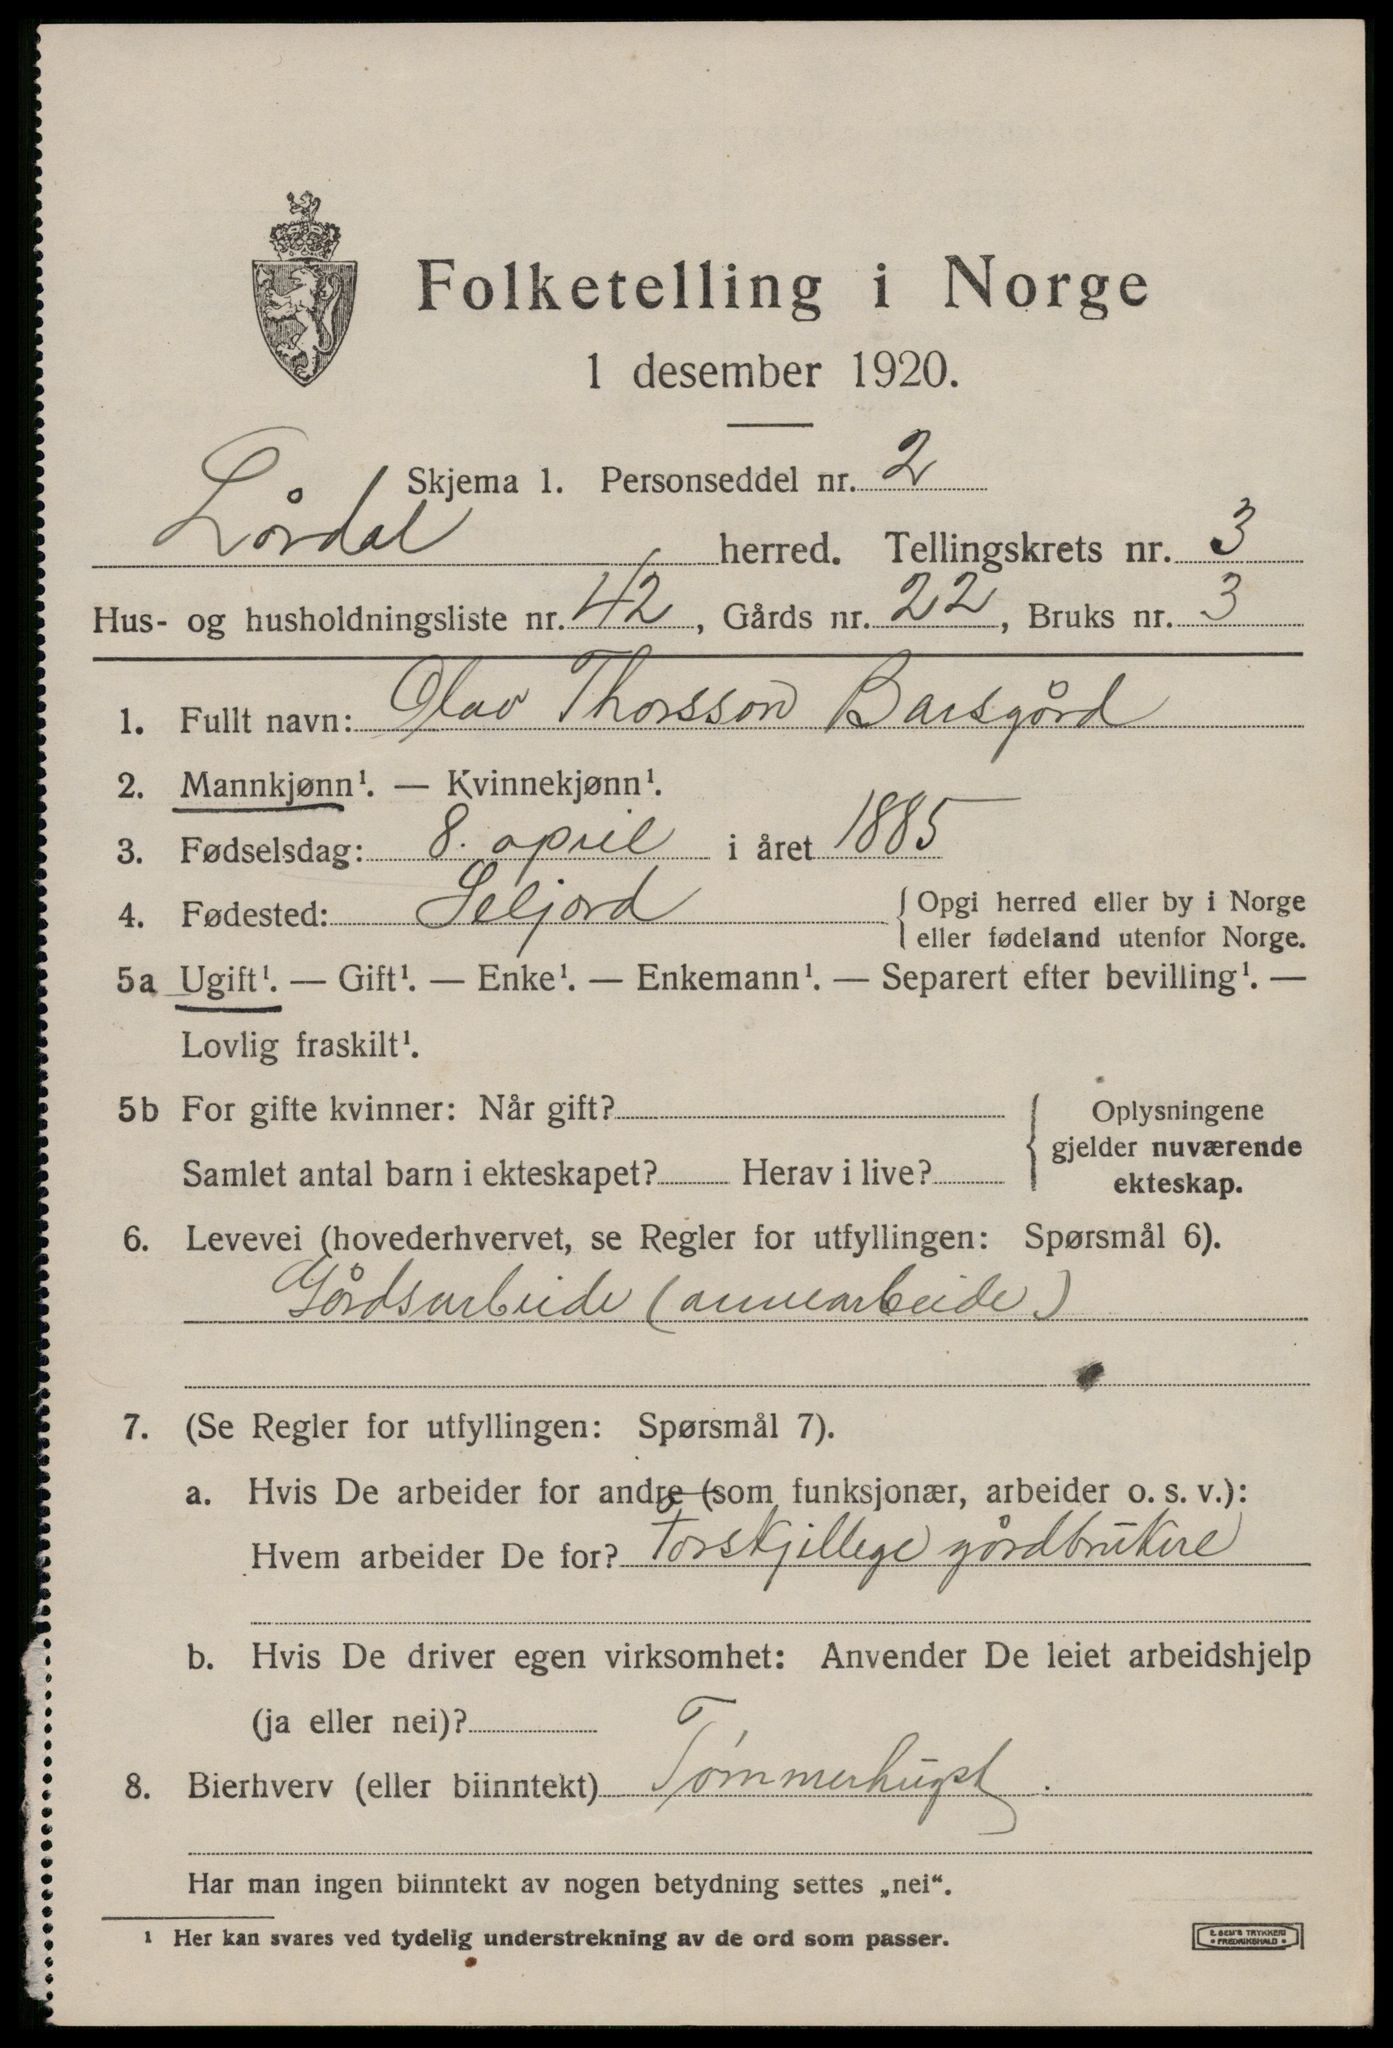 Folketelling i Norge
1 desember 1920.
Skjema 1. Personseddel nr. 2
Lårdal herred. Tellingskrets nr. 3
Hus- og husholdningsliste nr. 42, Gårds nr. 22, Bruks nr. 3
1. Fullt navn: Olav Thorsson Barsgård
2. Mannkjønn¹. — Kvinnekjønn¹.
3. Fødselsdag: 8. april i året 1885
4. Fødested: Seljord { Opgi herred eller by i Norge
eller fødeland utenfor Norge.
5a Ugift¹. — Gift¹. — Enke¹. — Enkemann¹. — Separert efter bevilling¹. —
Lovlig fraskilt¹.
5b For gifte kvinner: Når gift?
Samlet antal barn i ekteskapet? Herav i live?
{ Oplysningene
gjelder nuværende
ekteskap.
6. Levevei (hovederhvervet, se Regler for utfyllingen: Spørsmål 6).
Gårdsarbeide (annearbeide)
7. (Se Regler for utfyllingen: Spørsmål 7).
a. Hvis De arbeider for andre (som funksjonær, arbeider o. s. v.):
Hvem arbeider De for? Forskjillege gårdbrukere
b. Hvis De driver egen virksomhet: Anvender De leiet arbeidshjelp
(ja eller nei)?
8. Bierhverv (eller biinntekt) Tømmerhugst.
Har man ingen biinntekt av nogen betydning settes „nei“.
¹ Her kan svares ved tydelig understrekning av de ord som passer.
E. SEM'S TRYKKERI
• FREDRIKSHALD •